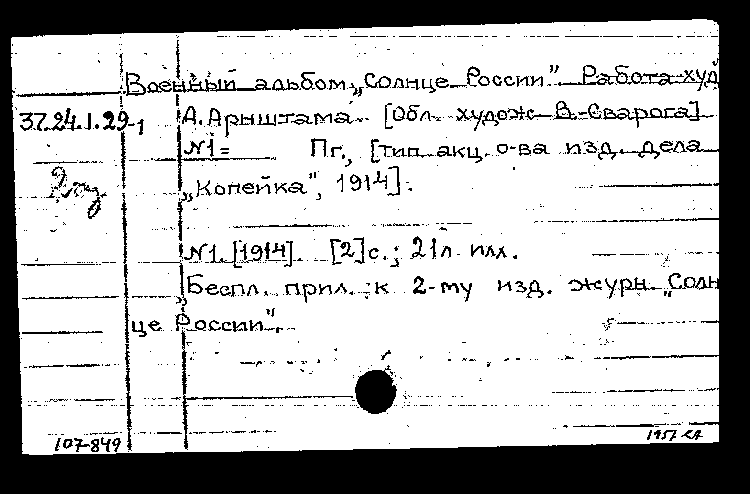 Военный альбом „Солнце России“. Работа худ
37.24.1.29-1 А. Арнштама. [Обл. худож. В. Сварога]
№1= Пг., [тип. акц. о-ва изд. дела
2 экз
„Копейка“, 1914].
№1. [1914]. [2] с.; 21 л. илл.
„Беспл. прил. к 2-му изд. журн. „Солн
це России“.
107-849